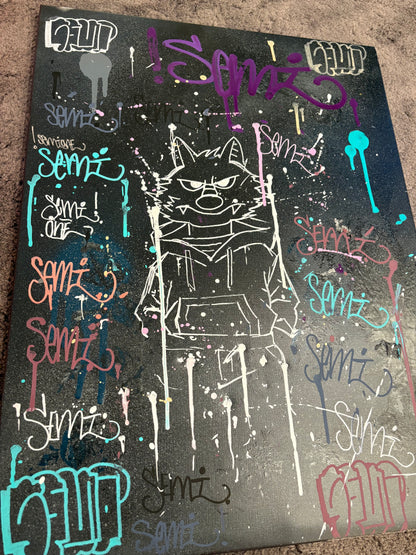 !Semi
Semi!
Semi
SEMIONE
Semi
Semi!
Semi!
ONE
Semi
Semi
Semi
Semi
Semi
Semi
Semi
Semi
Semi
Semi!